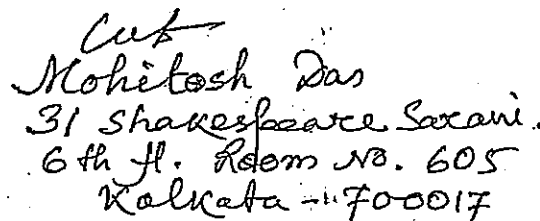 Cut
Mohitosh Das
31 Shakespeare Sarani.
6th fl. Room No. 605
Kolkata - 700017